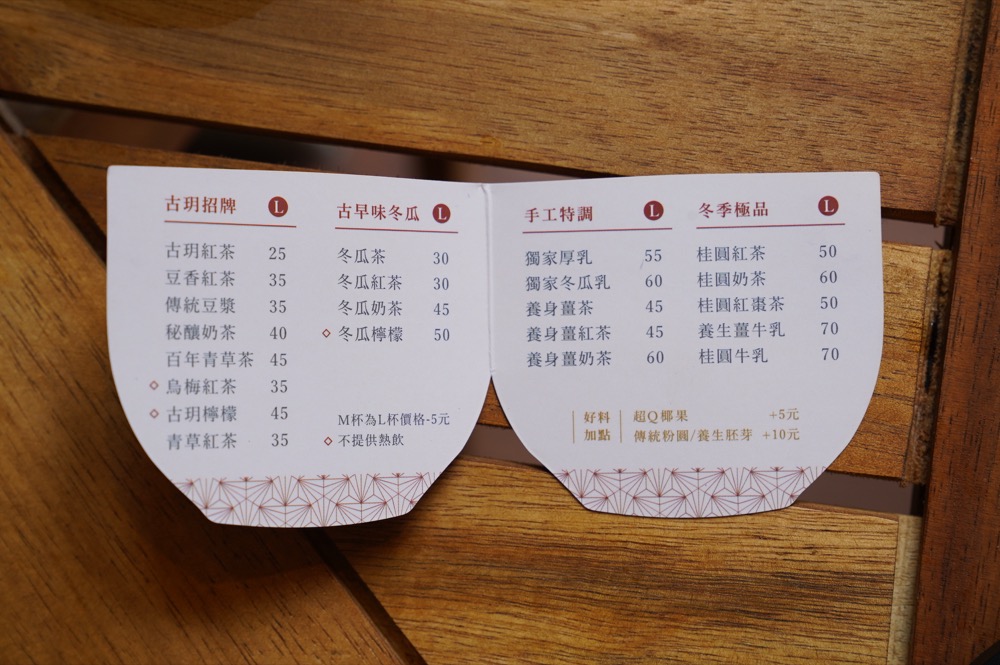 古玥招牌 L
古玥紅茶 25
豆香紅茶 35
傳統豆漿 35
秘釀奶茶 40
百年青草茶 45
◇烏梅紅茶 35
◇古玥檸檬 45
青草紅茶 35
古早味冬瓜 L
冬瓜茶 30
冬瓜紅茶 30
冬瓜奶茶 45
◇冬瓜檸檬 50
M杯為L杯價格-5元
◇不提供熱飲
手工特調 L
獨家厚乳 55
獨家冬瓜乳 60
養身薑茶 45
養身薑紅茶 45
養身薑奶茶 60
冬季極品 L
桂圓紅茶 50
桂圓奶茶 60
桂圓紅棗茶 50
養生薑牛乳 70
桂圓牛乳 70
好料 超Q椰果 +5元
加點 傳統粉圓/養生胚芽 +10元